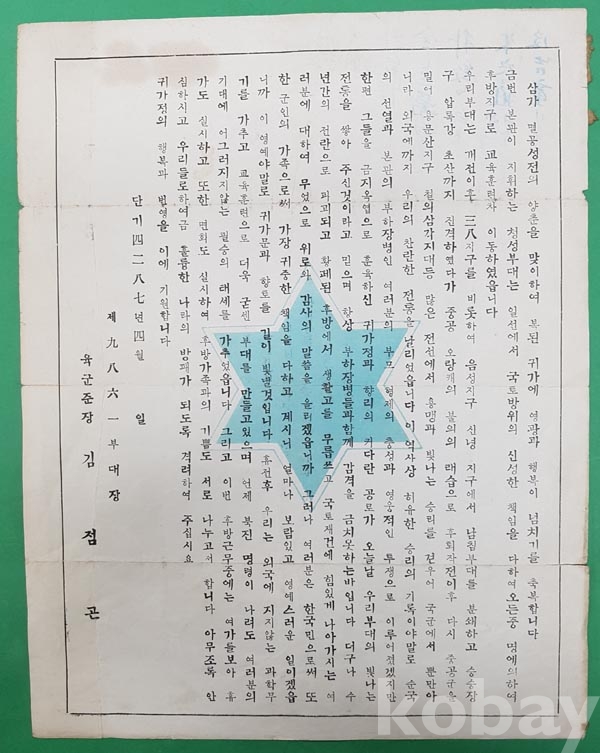 삼가 멸공성전의 양춘을 맞이하여 복된 귀가에 영광과 행복이 넘치기를 축복합니다
금번 본관이 지휘하는 청성부대는 일선에서 국토방위의 신성한 책임을 다하여오든중 명예의하여
후방지구로 교육훈련차 이동하였읍니다
우리부대는 개전이후 三八지구를 비롯하여 음성지구 신녕지구에서 남침부대를 분쇄하고 승승장
구 압록강 초산까지 진격하였다가 중공 오랑캐의 불의의 래습으로 후퇴작전이후 다시 중공군을
밀어 용문산지구 철의삼각지대등 많은 전선에서 용맹과 빛나는 승리를 견우어 국군에서 뿐만아
니라 외국에까지 우리의 찬란한 전통을 날리었읍니다 이 역사상 히유한 승리의 기록이야말로 순국
의 선열과 본관의 부하장병인 여러분의 부모 형제의 충성과 영웅적인 투쟁으로 이루어젔겠지만
한편 그들을 금지옥엽으로 훈육하신 귀가정과 향리의 커다란 공로가 오늘날 우리부대의 빛나는
전통을 쌓아 주신것이라고 믿으며 항상 부하장병들과함께 감격을 금치못하는바입니다 더구나 수
년간의 전란으로 파괴되고 황폐된 후방에서 생활고를 무릅쓰고 국토재건에 힘있게 나아가시는 여
러분에 대하여 무엇으로 위로와 감사의 말씀을 올리겠읍니까 그러나 여러분은 한국민으로써 또
한 군인의 가족으로써 가장 귀중한 책임을 다하고 계시니 얼마나 보람있고 영예스러운 일이겠읍
니까 이 영예야말로 귀가문과 향토를 길이 빛낼것입니다 휴전후 우리는 외국에 지지않는 과학무
기를 가추고 교육훈련으로 더욱 굳센 부대를 만들고있으며 언제 북진 명령이 나려도 여러분의
기대에 어그러지지않는 필승의 태세를 가추었읍니다 그리고 이번 후방근무중에는 여가를보아 휴
가도 실시하고 또한 면회도 실시하여 후방가족과의 기쁨도 서로 나누고저 합니다 아무조록 안
심하시고 우리들로하여금 훌륭한 나라의 방패가 되도록 격려하여 주십시요
귀가정의 행복과 번영을 이에 기원합니다
단기四二八七년四월 일
제九八六一부대장
육군준장 김점곤
kobay